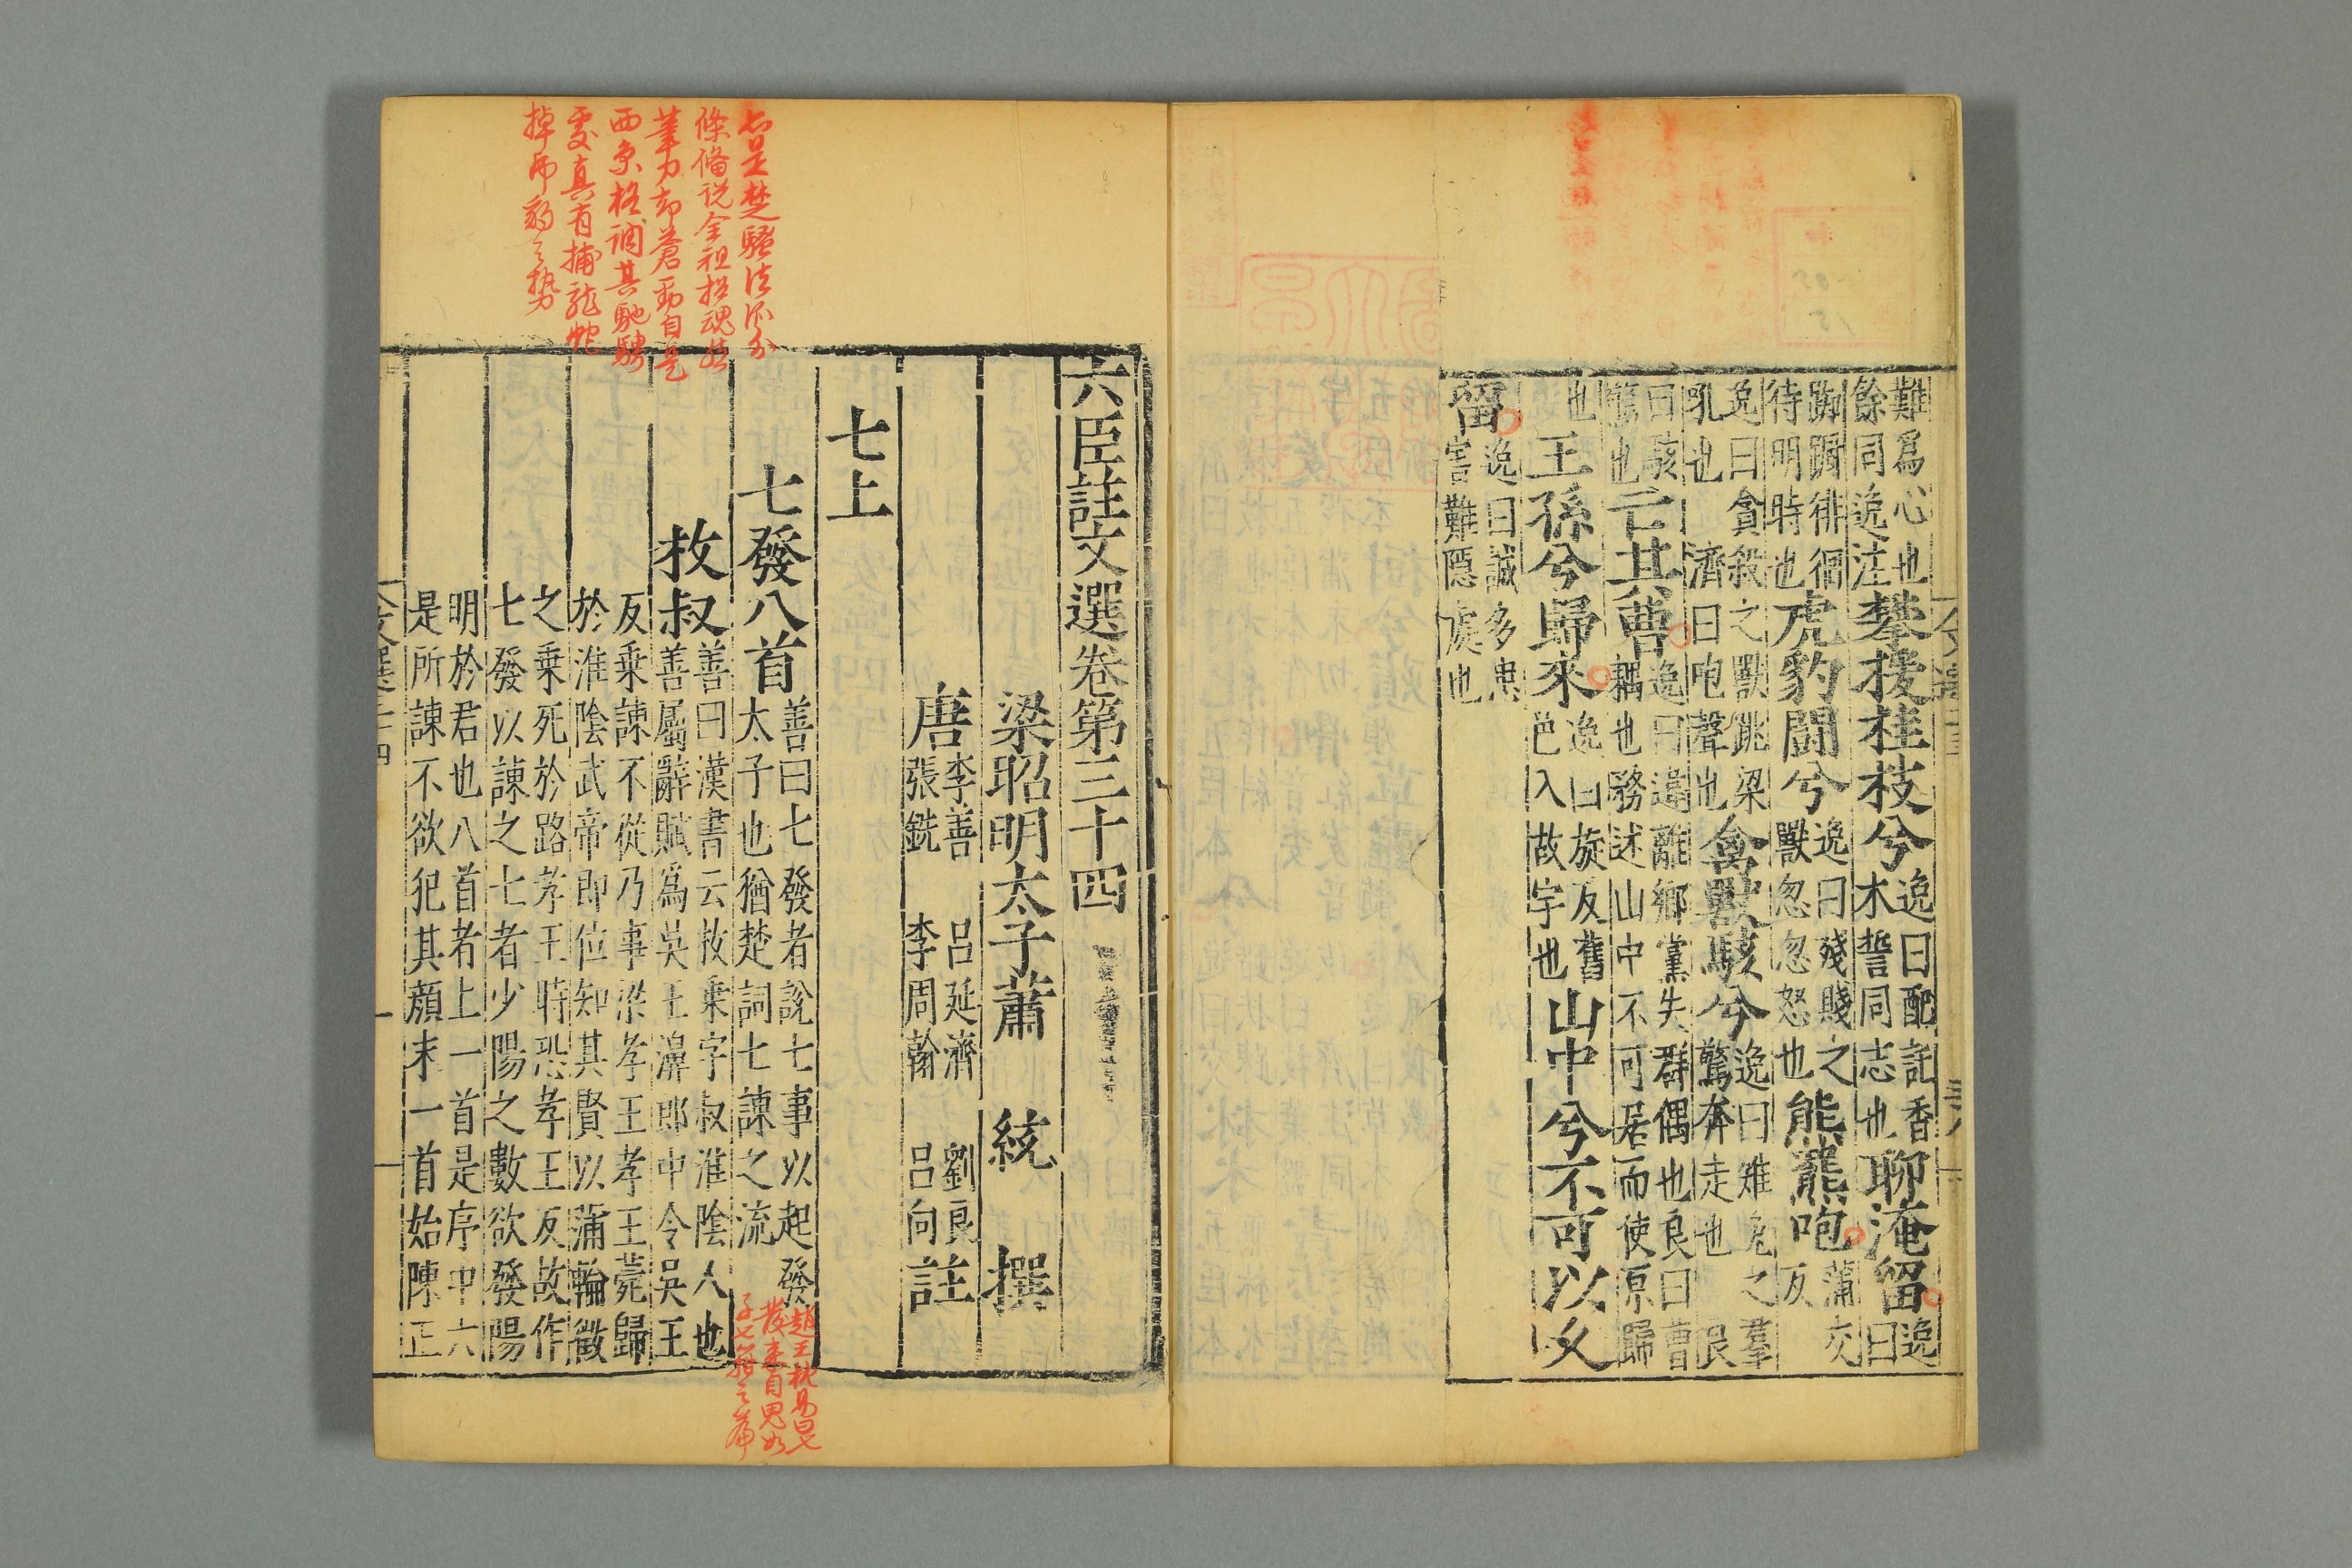 難爲心也
餘同逸注
攀援桂枝兮
逸曰配託香
木誓同志也
聊淹留
逸
曰
踟躕徘徊
待明時也
虎豹鬬兮
逸曰殘賤之
獸忽忽怒也
熊羆咆
蒲交
反
逸曰貪殺之獸跳梁
吼也 濟曰咆聲也
禽獸駭兮
逸曰雉兔之羣
驚奔走也 良
曰駭
驚也
亡其曹
逸曰違離鄉黨失群偶也良曰曹
耦也務述山中不可居而使原歸
也
王孫兮歸來
逸曰旋反舊
邑入故宇也
山中兮不可以久
留
逸曰誠多患
害難隱處也
六臣註文選卷第三十四
梁昭明太子蕭 統 撰
唐
李善 呂延濟 劉良
張銑 李周翰 呂向
註
七上
七發八首
善曰七發者說七事以起發
太子也猶楚詞七諫之流
枚叔
善曰漢書云枚乘字叔淮陰人也
善屬辭賦爲吳王濞郎中令吳王
反乘諫不從乃事梁孝王孝王薨歸
於淮陰武帝即位知其賢以蒲輪徵
之乘死於路孝王時恐孝王反故作
七發以諫之七者少陽之數欲發陽
明於君也八首者上一首是序中六
是所諫不欲犯其顏末一首始陳正
文選三十四
一
七是楚騷流分
條備說全祖招魂然
筆力却蒼勁自是
西京格調其馳騁
處真有捕龍蛇
搏虎豹之勢